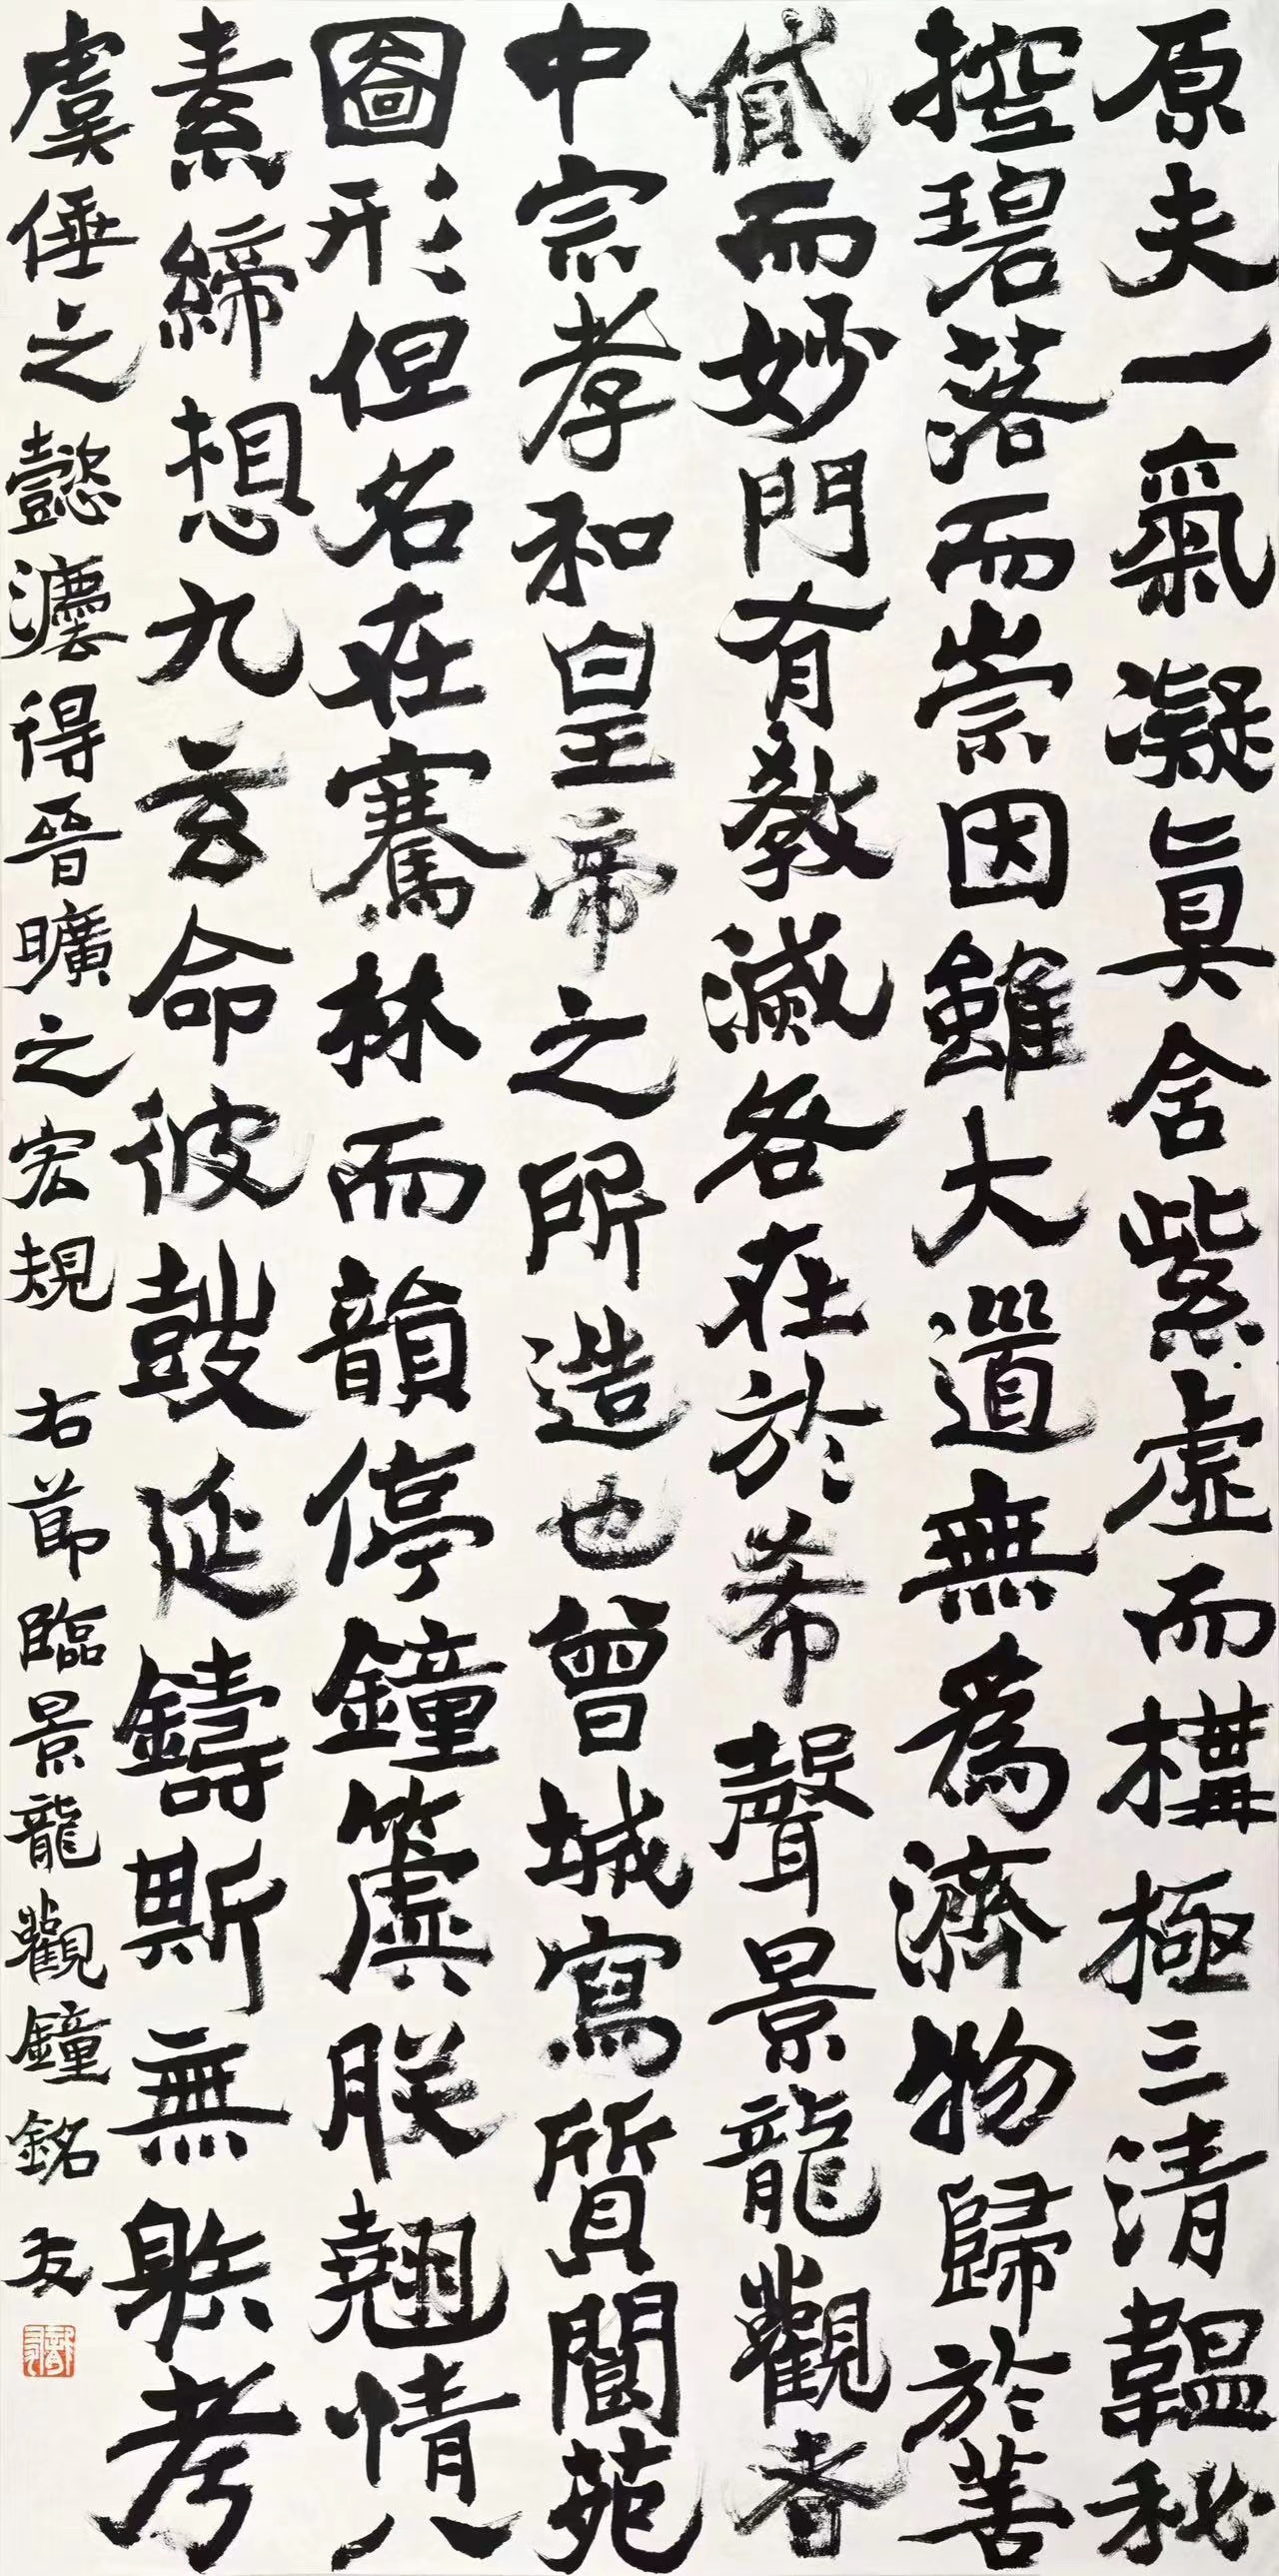 原夫一氣凝真含紫虛而構極三清韞秘
控碧落而崇因雖大道無為濟物歸於善
貸而妙門有教滅咎在於希聲景龍觀者
中宗孝和皇帝之所造也曾城寫質閬苑
圖形但名在騫林而韻停鐘簴朕翹情八
素締想九玄命彼鼓延鑄斯無射考
虞倕之懿法得晉曠之宏規 右節臨景龍觀鐘銘 友